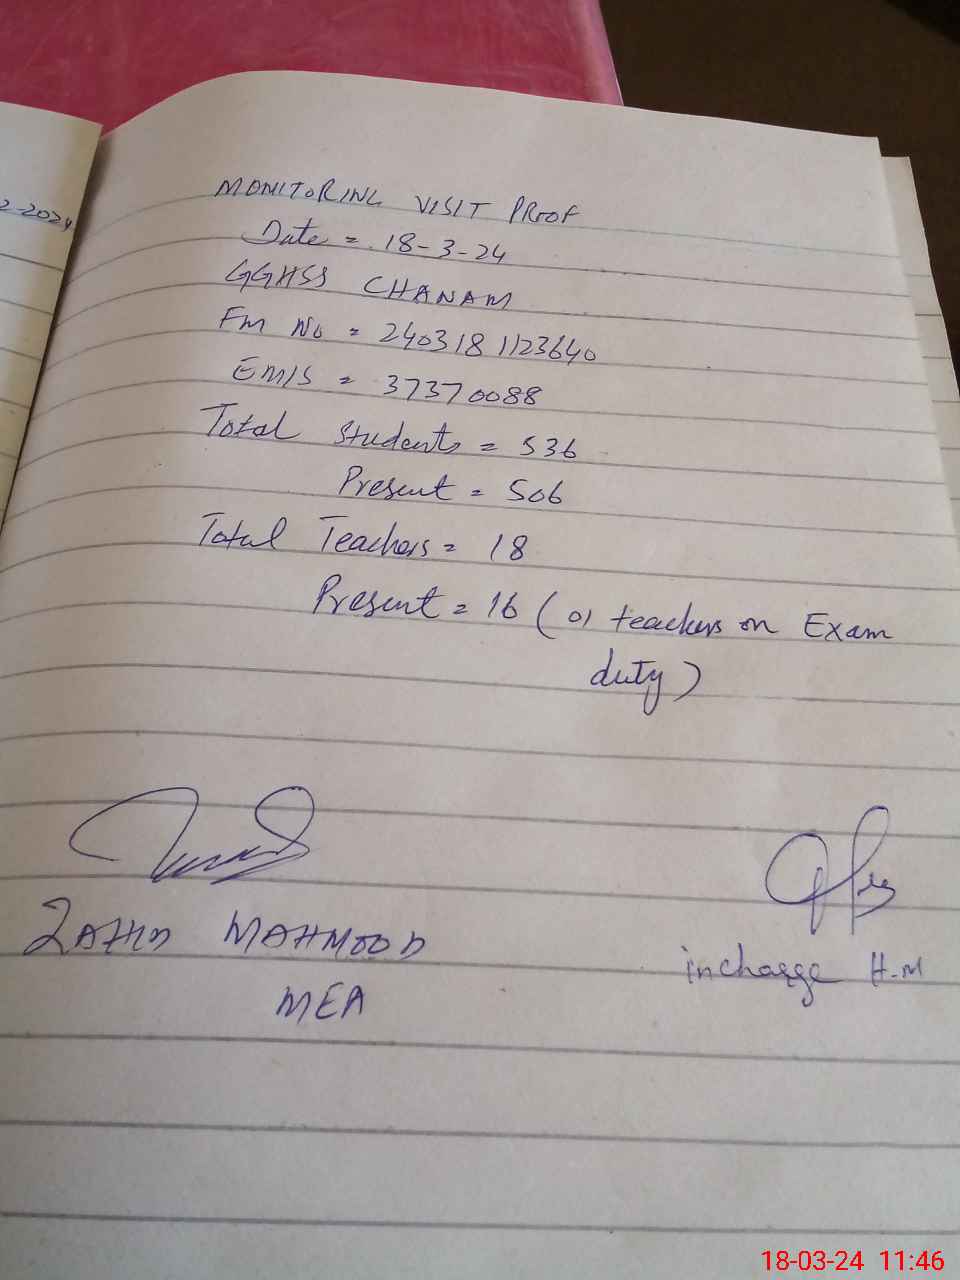 2-2024
MONITORING VISIT PROOF
Date = 18-3-24
GGHSS CHANAM
FM No = 2403181123640
EMIS = 37370088
Total Students = 536
Present = 506
Total Teachers = 18
Present = 16 (01 teachers on Exam
duty)
ZAHID MAHMOOD
MEA
incharge H.M
18-03-24 11:46